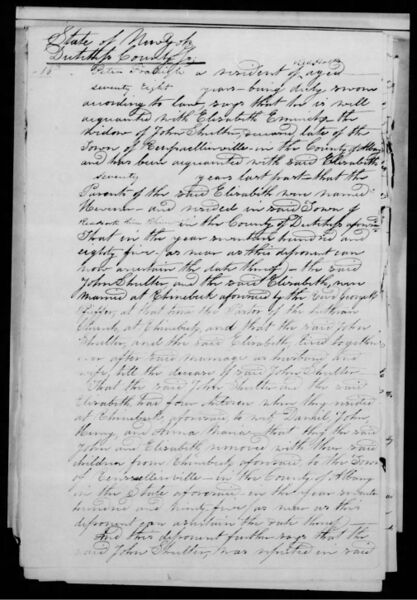 State of New York
Dutchess County Ss
Peter Fraleigh a resident of aged
seventy Eight years being duly sworn
according to law, says that he is well
acquainted with Elizabeth the
widow of John Shulter, deceased late of the
Town of Rensselaerville in the County of Albany
and has been acquainted with said Elizabeth
seventy years last past that the
Parents of the said Elizabeth were named
and resided in said Town of
in the County of Dutchess aforesaid
That in the year seventeen hundred and
eighty five, as near as this deponent can
now ascertain the date thereof the said
John Shulter and the said Elizabeth, were
married at Rhinebeck aforesaid by the Rev
at that time the Pastor of the Lutheran
Church, at Rhinebeck, and that the said John
Shulter, and the said Elizabeth, lived together
ever after said marriage as husband and
wife, till the decease of said John Shulter
That the said John Shulter and the said
Elizabeth, had four children when they resided
at Rhinebeck, aforesaid, to wit, Daniel, John,
Henry, and Anna Maria that they the said
John and Elizabeth removed with their said
children from Rhinebeck aforesaid, to the Town
of Rensselaerville in the County of Albany
in the State aforesaid in the year
hundred and ninety five, as near as this
deponent can ascertain the date thereof
And this deponent further says that the
said John Shulter, was reputed in said